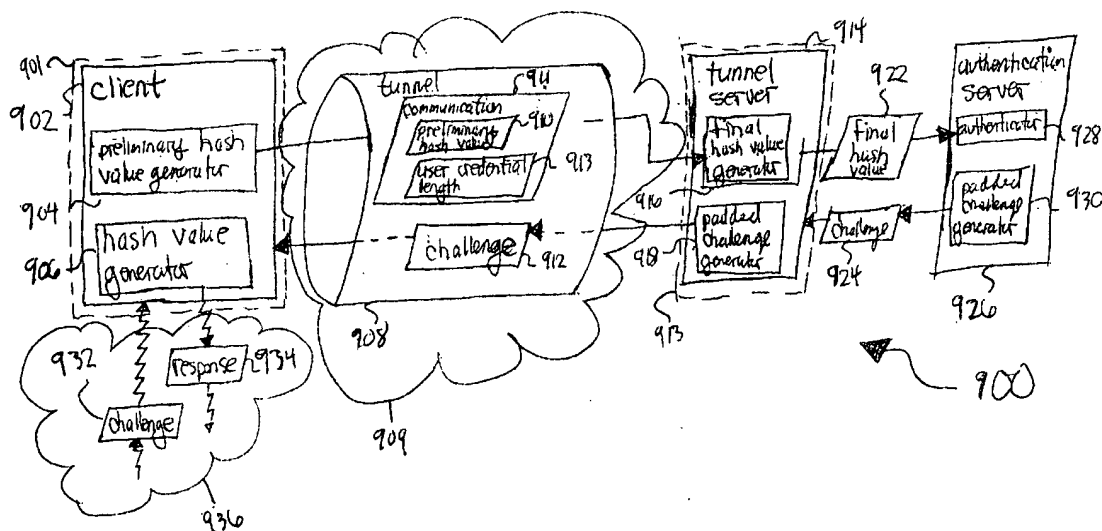 901
902
client
preliminary hash
value generator
904
906
hash value
generator
932
challenge
response
934
936
tunnel
911
communication
preliminary
hash value
910
user credential
length
913
challenge
912
908
909
914
tunnel
server
final
hash value
generator
916
padded
challenge
generator
918
913
922
final
hash
value
challenge
924
authentication
server
authenticator
928
padded
challenge
generator
930
926
900